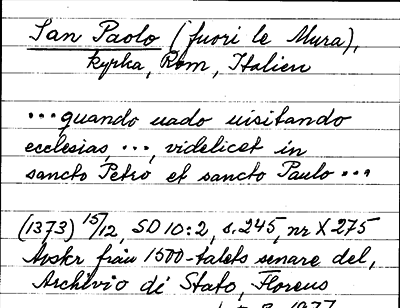 San Paolo (fuori le Mura),
kyrka, Rom, Italien
...quando uado uisitando
ecclesias, ..., videlicet in
sancto Petro et sancto Paulo ...
(1373) 15/12, SD 10:2, s. 245, nr X 275
Avskr från 1500-talets senare del,
Archivio di Stato, Florens
1977